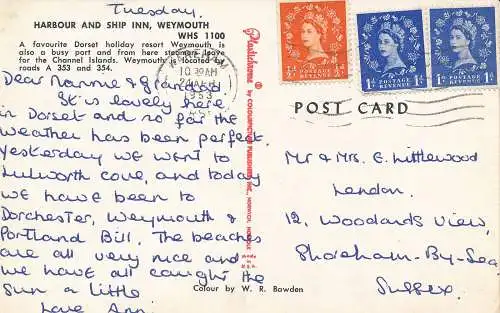 Tuesday,
HARBOUR AND SHIP INN, WEYMOUTH
WHS 1100
A favourite Dorset holiday resort Weymouth is
also a busy port and from here steamers leave
for the Channel Islands. Weymouth is located on
roads A 353 and 354.
Dear Nannie & Grandad
It is lovely here
in Dorset and so far the
weather has been perfect.
Yesterday we went to
Lulworth cove, and today
we have been to
Dorchester, Weymouth &
Portland Bill. The beaches
are all very nice and
we have all caught the
sun a little
Love Ann.
Colour by W. R. Bawden
Plastichrome
by COLOURPICTURE PUBLISHERS, INC.,
Made in
U.S.A.
10 30AM
1953
POSTAGE
REVENUE
POSTAGE
REVENUE
POSTAGE
REVENUE
POST CARD
Mr & Mrs. E. Littlewood
London.
12, Woodards View,
Shoreham-By-Sea
Sussex.